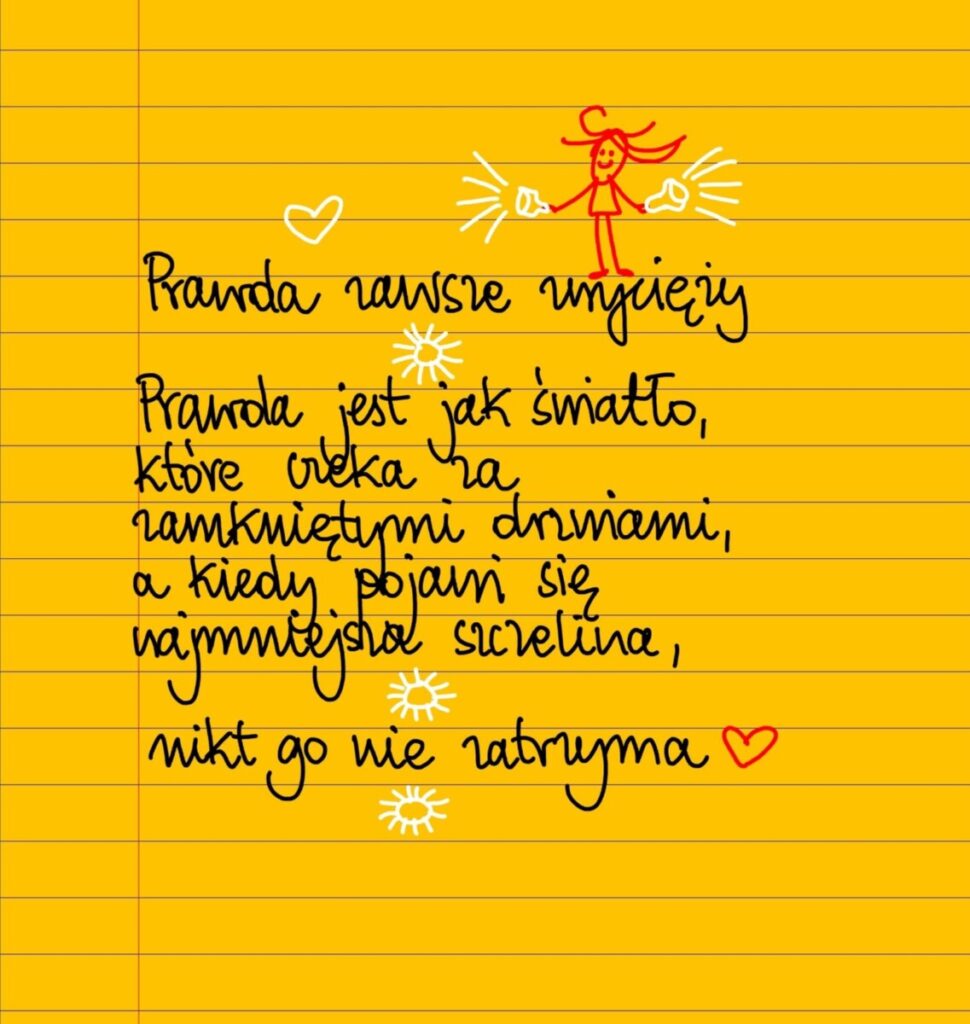 Prawda zawsze zwycięży
Prawda jest jak światło,
które czeka za
zamkniętymi drzwiami,
a kiedy pojawi się
najmniejsza szczelina,
nikt go nie zatrzyma